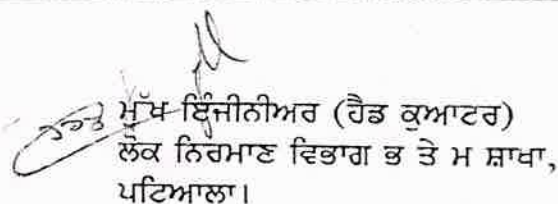 ਮੁੱਖ ਇੰਜੀਨੀਅਰ (ਹੈਡ ਕੁਆਟਰ)
ਲੋਕ ਨਿਰਮਾਣ ਵਿਭਾਗ ਭ ਤੇ ਮ ਸ਼ਾਖਾ,
ਪਟਿਆਲਾ।